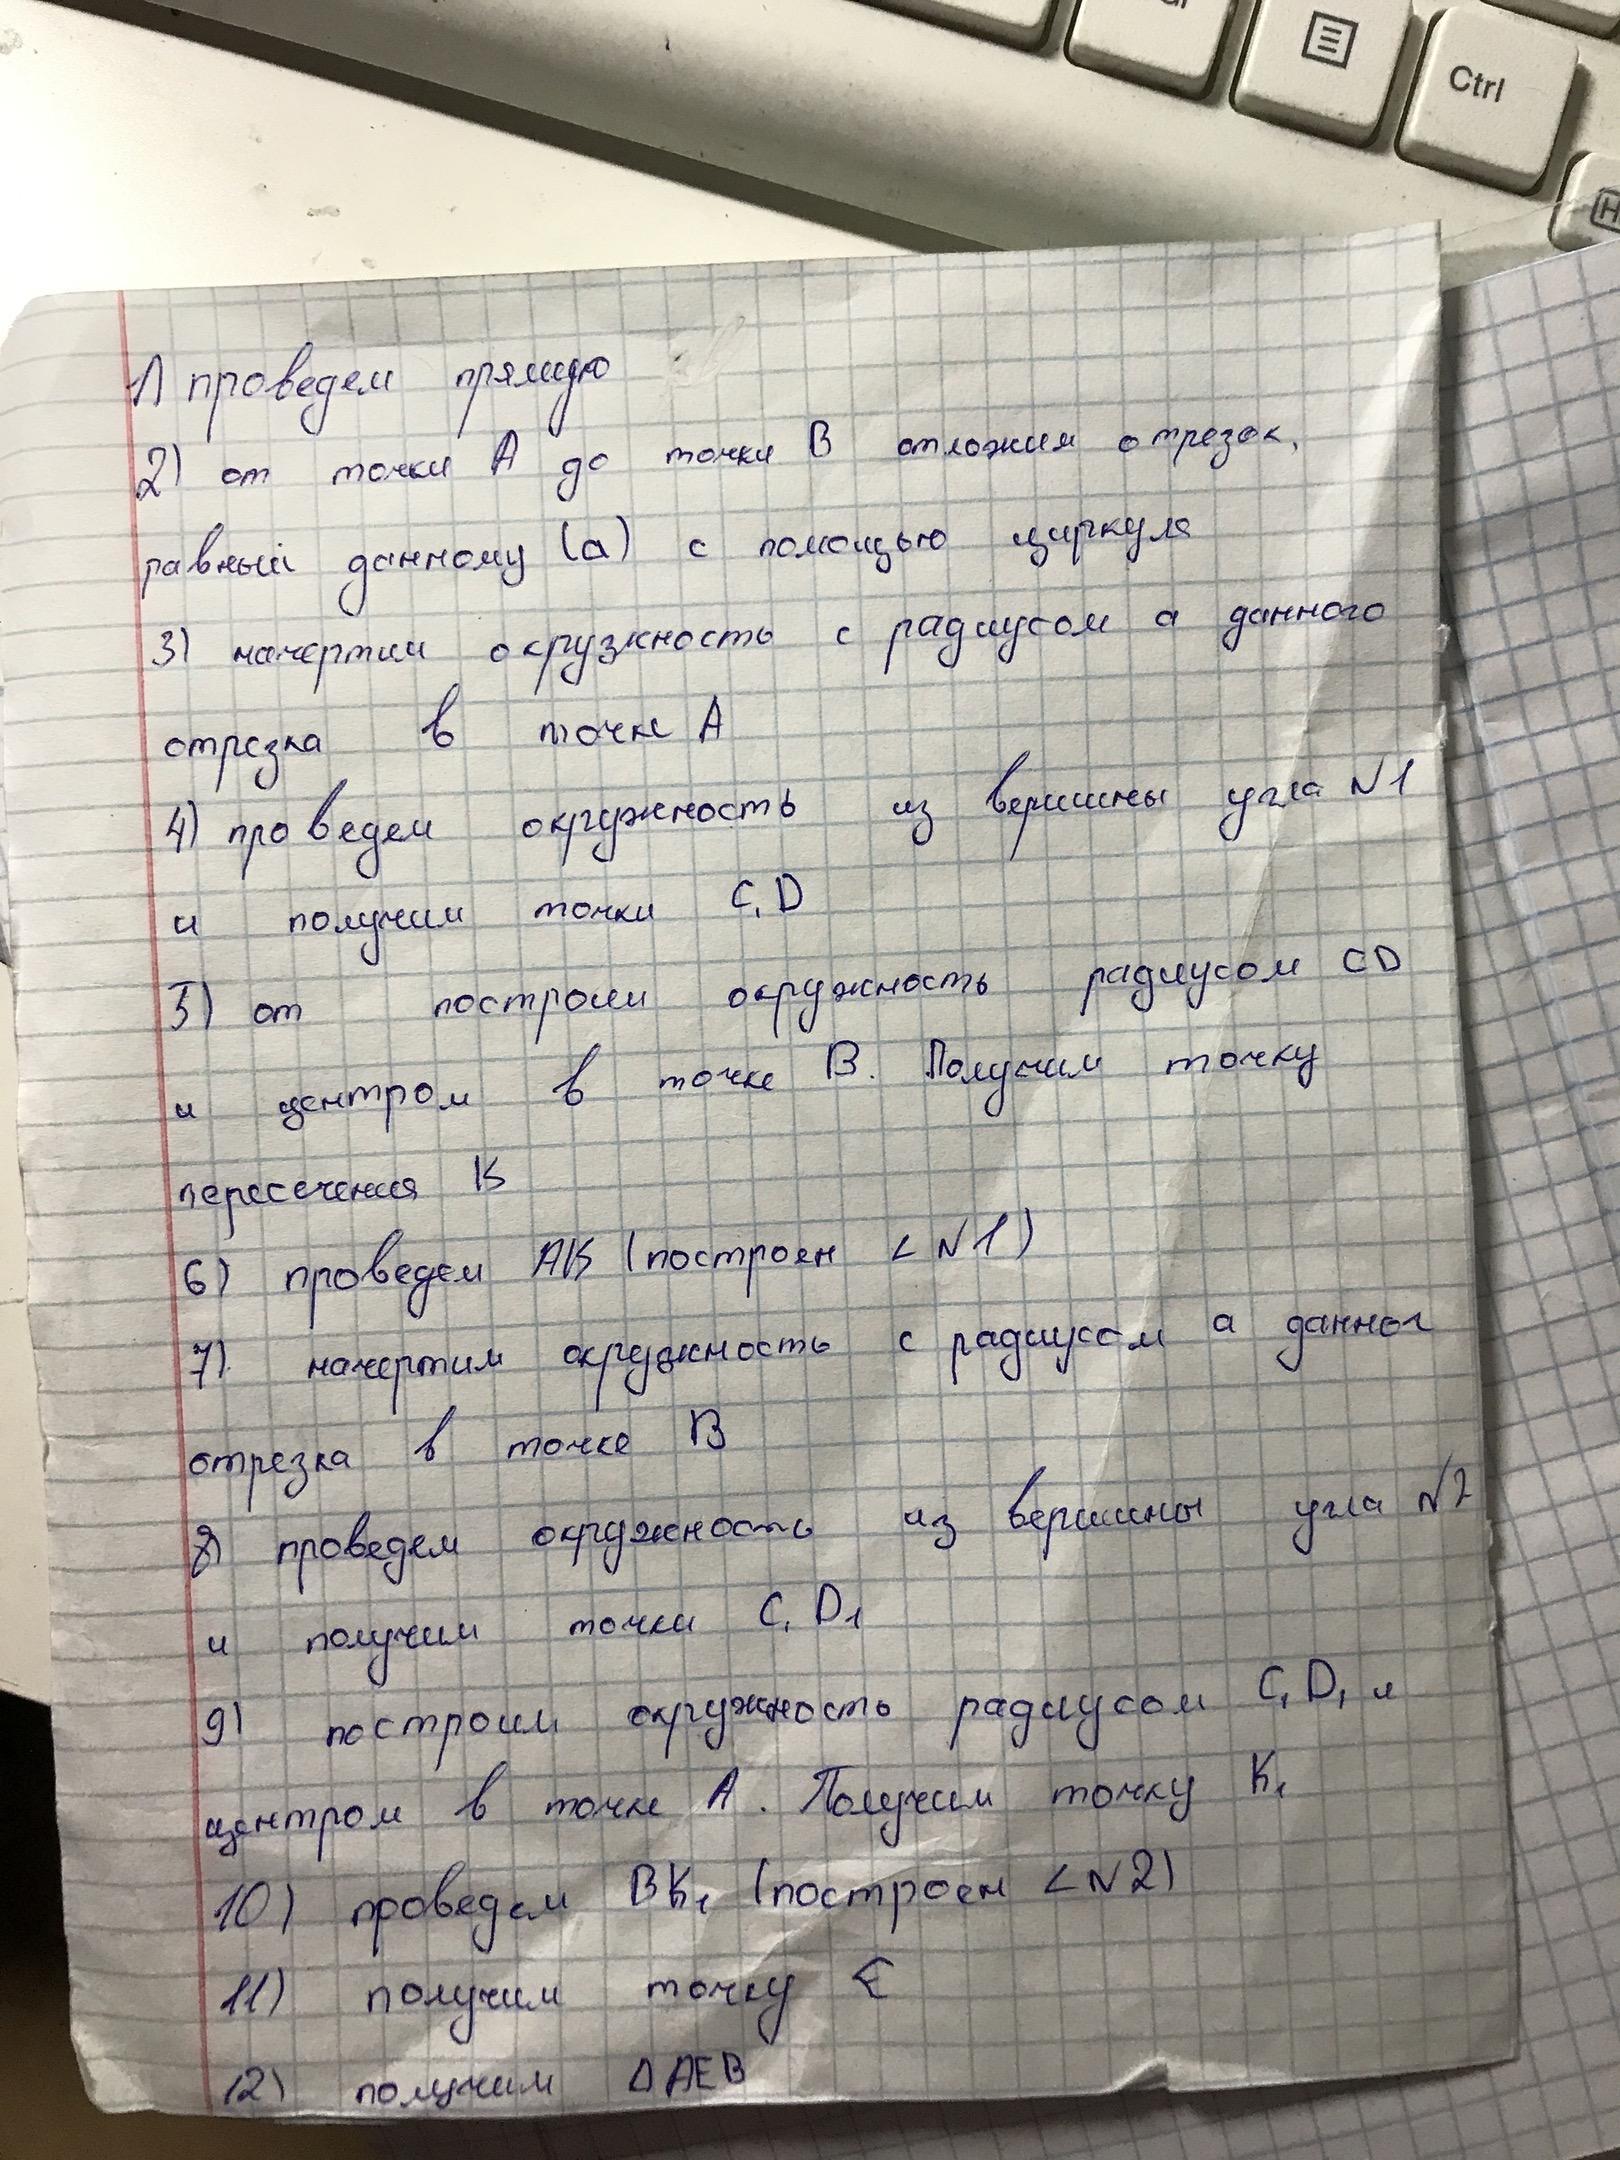 Ctrl
1) проведем прямую
2) от точки А до точки В отложим отрезок,
равный данному (а) с помощью циркуля
3) начертим окружность с радиусом а данного
отрезка в точке А
4) проведем окружность из вершины угла N1
и получим точки C, D
5) от построим окружность радиусом CD
и центром в точке В. Получим точку
пересечения К
6) проведем АК (построен < N1)
7) начертим окружность с радиусом а данног
отрезка в точке В
8) проведем окружность из вершины угла N2
и получим точки C₁ D₁
9) построим окружность радиусом C₁ D₁ и
центром в точке А. Получим точку К₁
10) проведем ВК₁ (построен < N2)
11) получим точку Е
12) получим Δ АЕВ